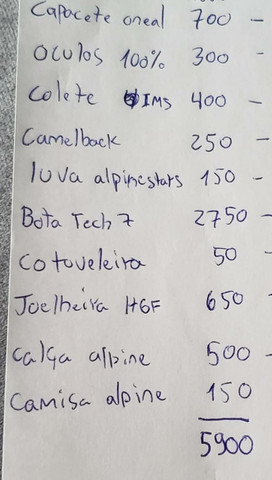 Capacete oneal 700 -
Oculos 100% 300 -
Colete IMS 400 -
Camelback 250 -
luva alpinestars 150 -
Bota Tech 7 2750 -
cotoveleira 50
Joelheira HGF 650
calça alpine 500 -
camisa alpine 150
5900